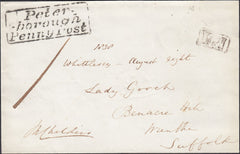 Peter-
-borough
Penny Post
1830
Whittlesey - August eight
Lady Gooch
Benacre Hall
Suffolk